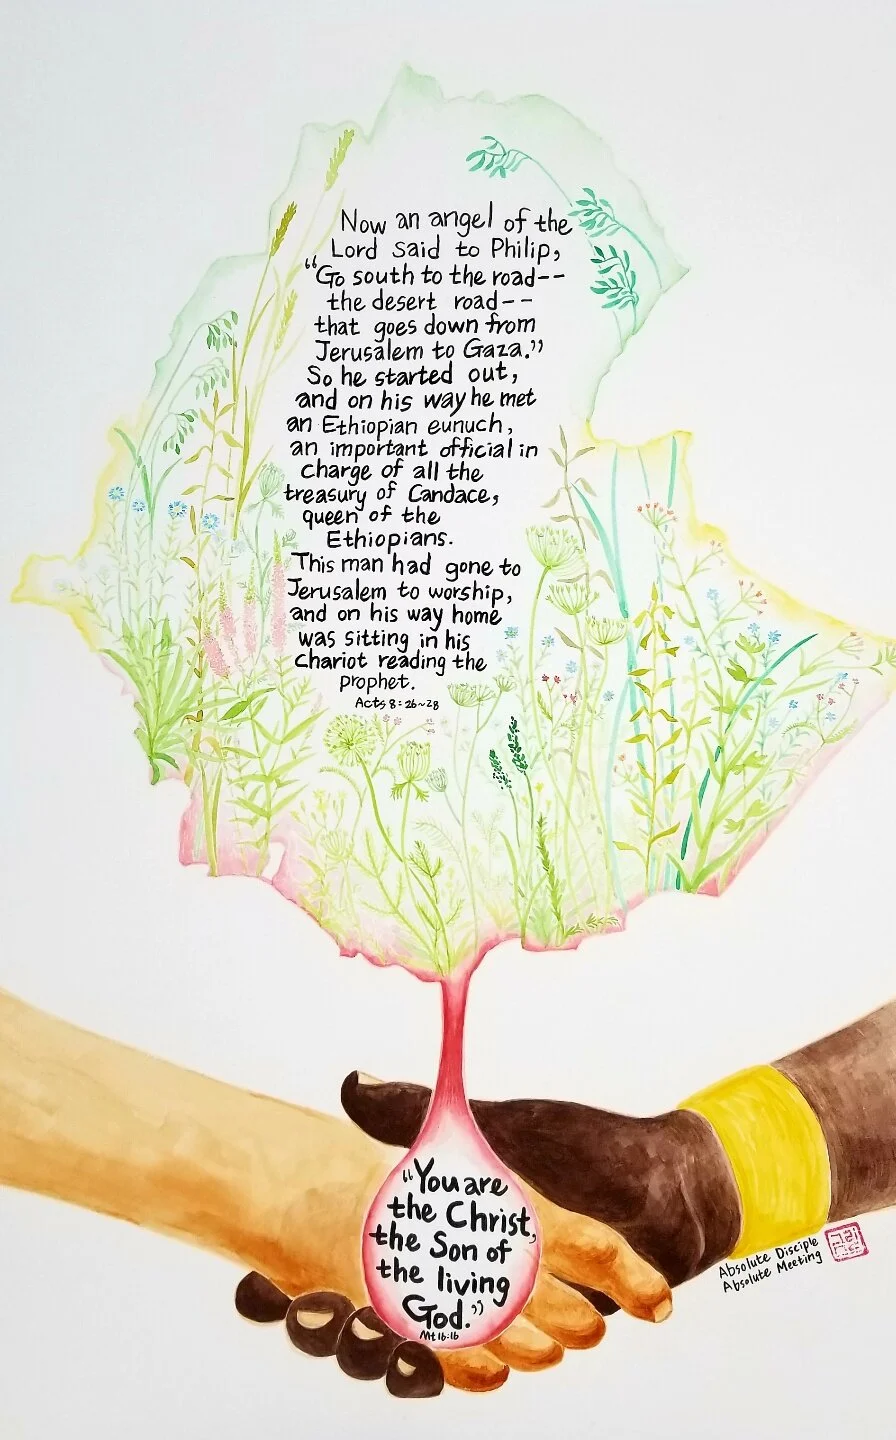 Now an angel of the
Lord said to Philip,
“Go south to the road--
the desert road--
that goes down from
Jerusalem to Gaza.”
So he started out,
and on his way he met
an Ethiopian eunuch,
an important official in
charge of all the
treasury of Candace,
queen of the
Ethiopians.
This man had gone to
Jerusalem to worship,
and on his way home
was sitting in his
chariot reading the
prophet.
Acts 8:26~28
“You are
the Christ,
the Son of
the living
God.”
Mt 16:16
Absolute Disciple
Absolute Meeting